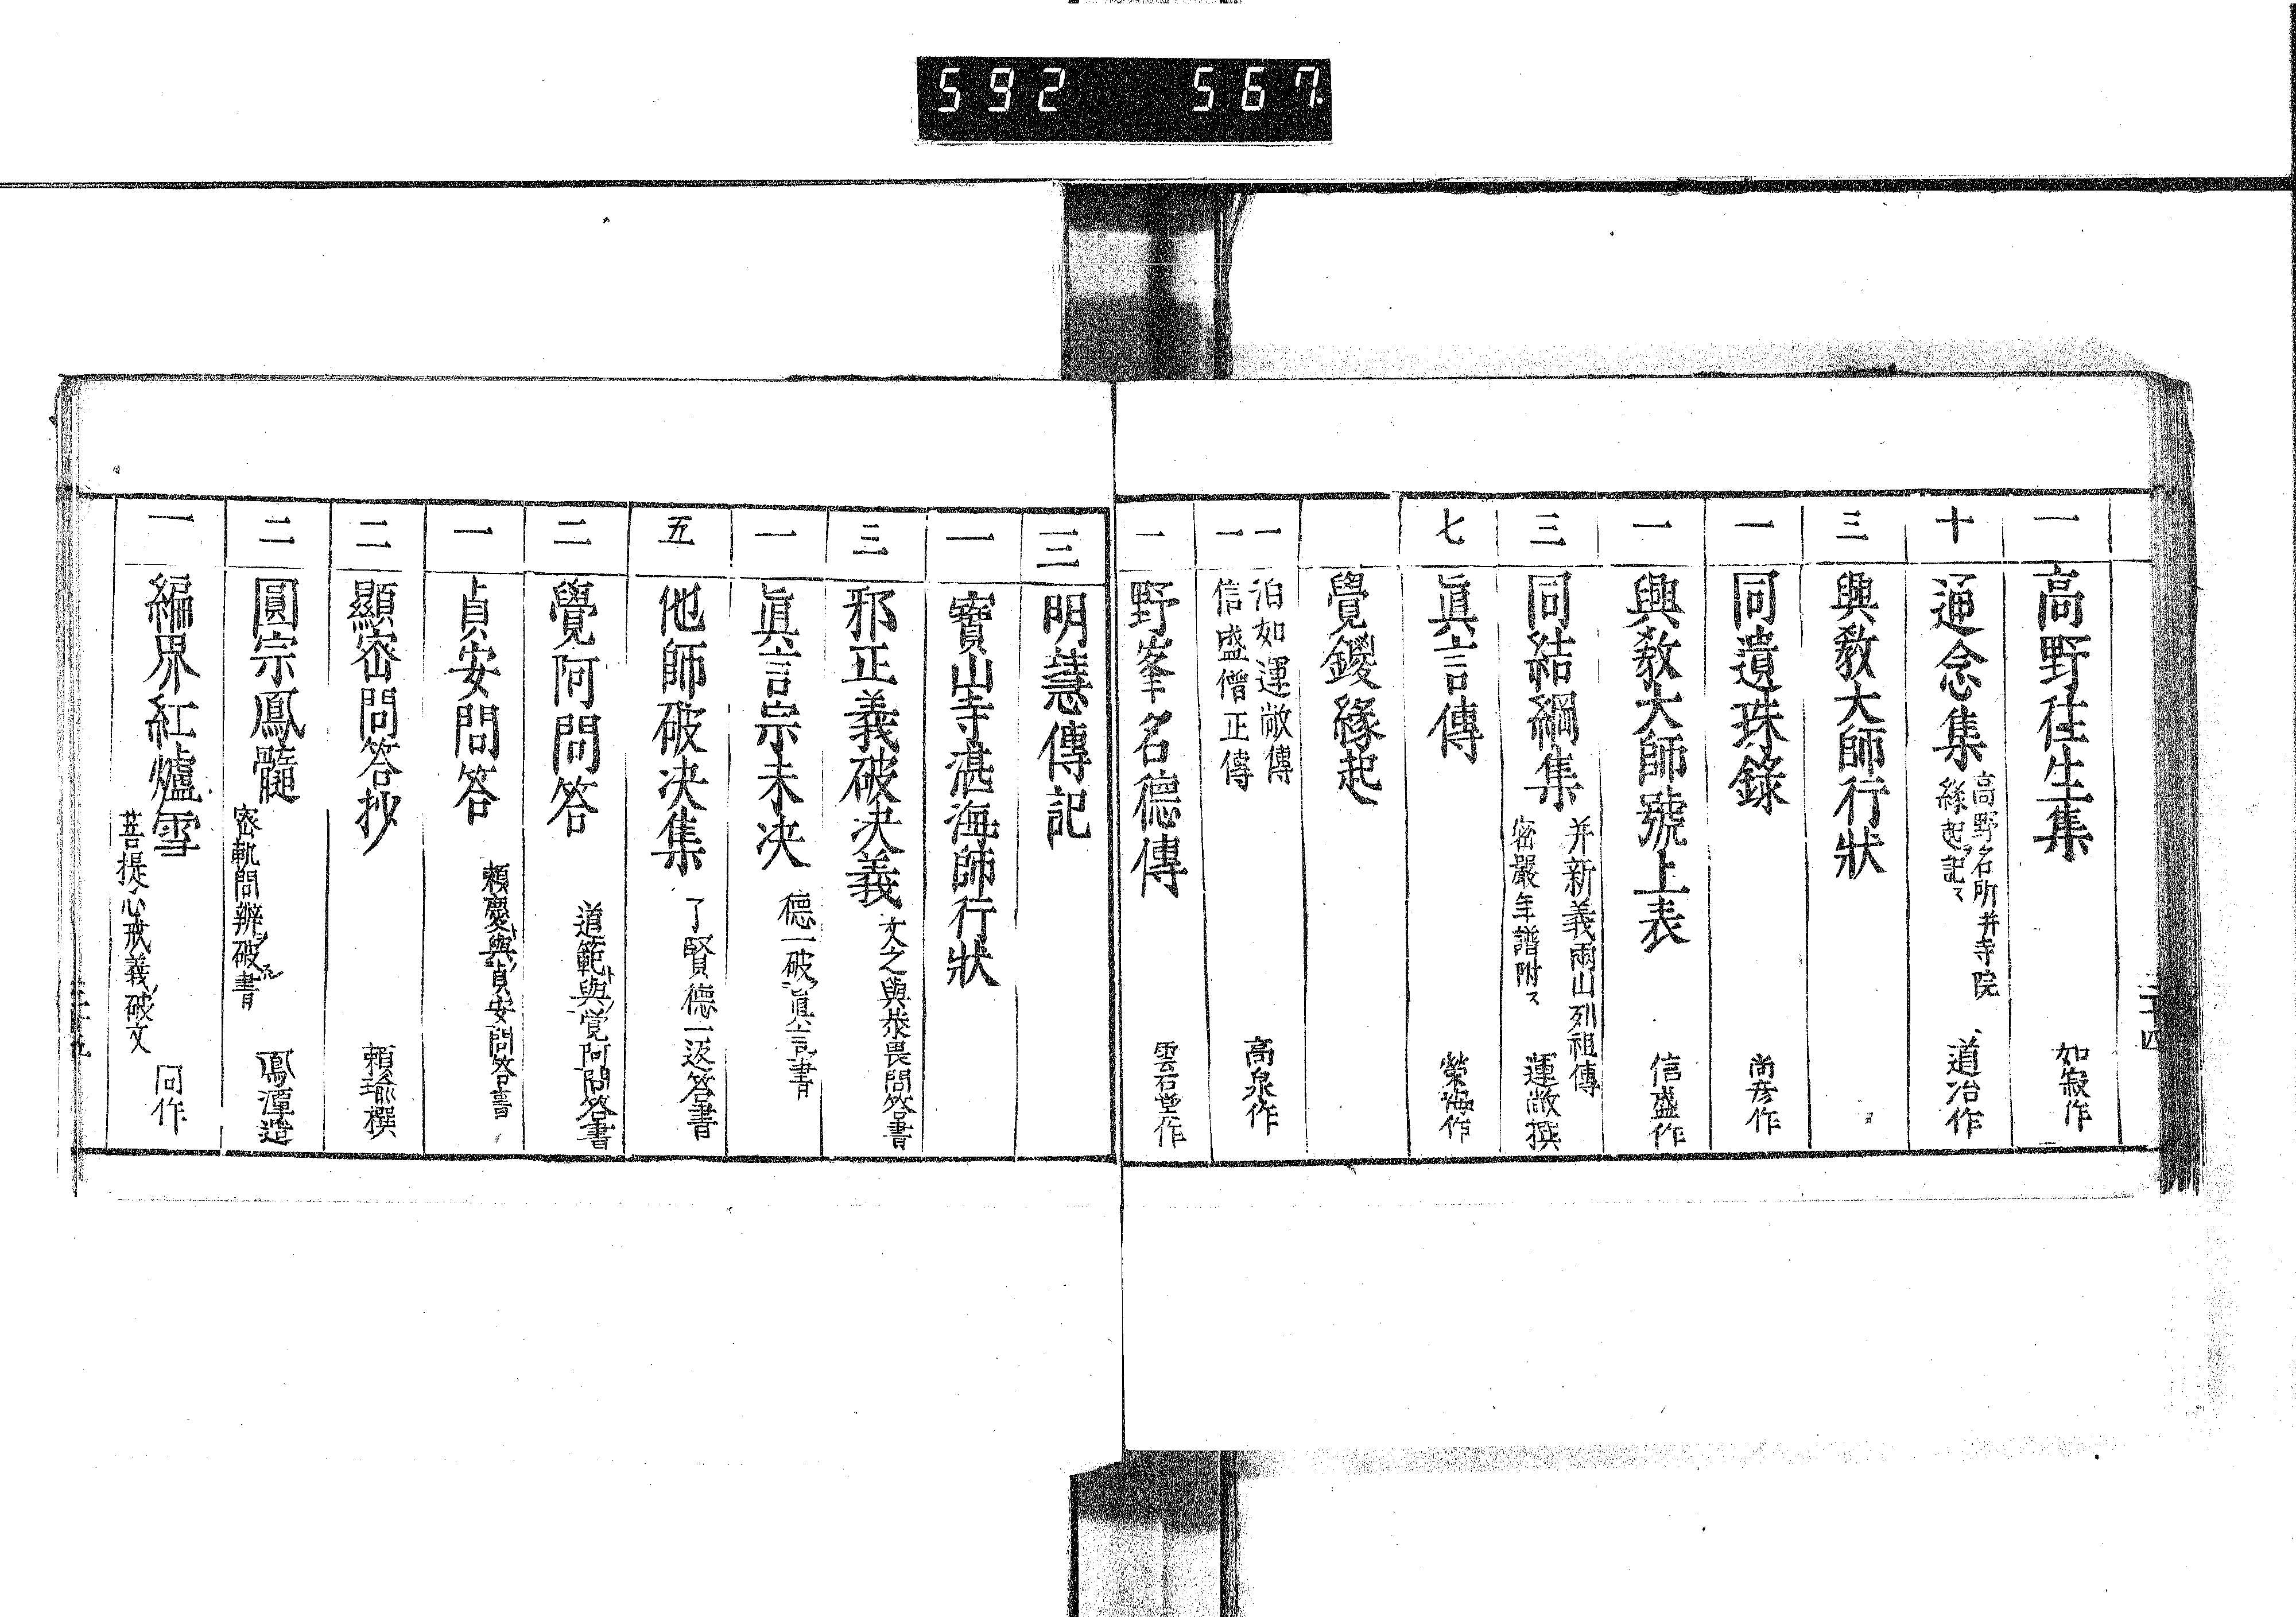 592 567
一 高野往生集 如寂作
十 通念集 高野名所并寺院
緣起ヲ記ス 道冶作
三 興教大師行狀
一 同遺珠錄 尚彥作
一 興教大師號上表 信盛作
三 同結綱集 并新義兩山列祖傳
密嚴年譜附ス 運敞撰
七 眞言傳 榮海作
覺鑁緣起
一 泊如運敞傳
一 信盛僧正傳 高泉作
一 野峯名德傳 雲石堂作
二十四
三 明慧傳記
一 寶山寺湛海師行狀
三 邪正義破決義 文之與恭畏問答書
一 眞言宗未决 德一破眞言書
五 他師破决集 了賢德一返答書
二 覺阿問答 道範與覺阿問答書
一 貞安問答 賴慶與貞安問答書
二 顯密問答抄 賴瑜撰
二 圓宗鳳髓 密軌問辨ヲ破書 鳳潭造
一 編界紅爐雪 菩提心戒義ヲ破文 同作